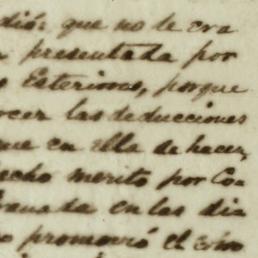 dió; que no le era
presentada por
Esteriores, porque
ocer las deducciones
que en ella de hacer,
echo merito por Co-
Granada en las dis
promovió el